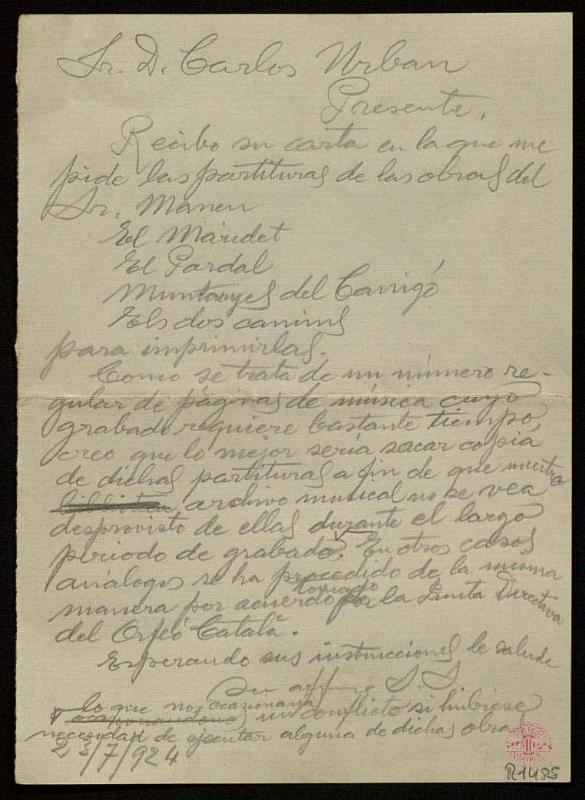 Sr. D. Carlos Urban
Presente.
Recibo su carta en la que me
pide las partituras de las obras del
Sr. Manen
El Maridet
El Pardal
Muntanyes del Canigó
Els dos camins
para imprimirlas.
Como se trata de un número re-
gular de páginas de música cuyo
grabado requiere bastante tiempo,
creo que lo mejor sería sacar copia
de dichas partituras a fin de que nuestro
biblioteca archivo musical no se vea
desprovisto de ellas durante el largo
periodo de grabado. En otros casos
análogos se ha procedido de la misma
manera por acuerdo tomado por la Junta Directiva
del Orfeó Català.
Esperando sus instrucciones le saluda
su affmo S S
lo que nos ocasionaria
un conflicto si hubiese
necesidad de ejecutar alguna de dichas obras
23/7/924
R1485